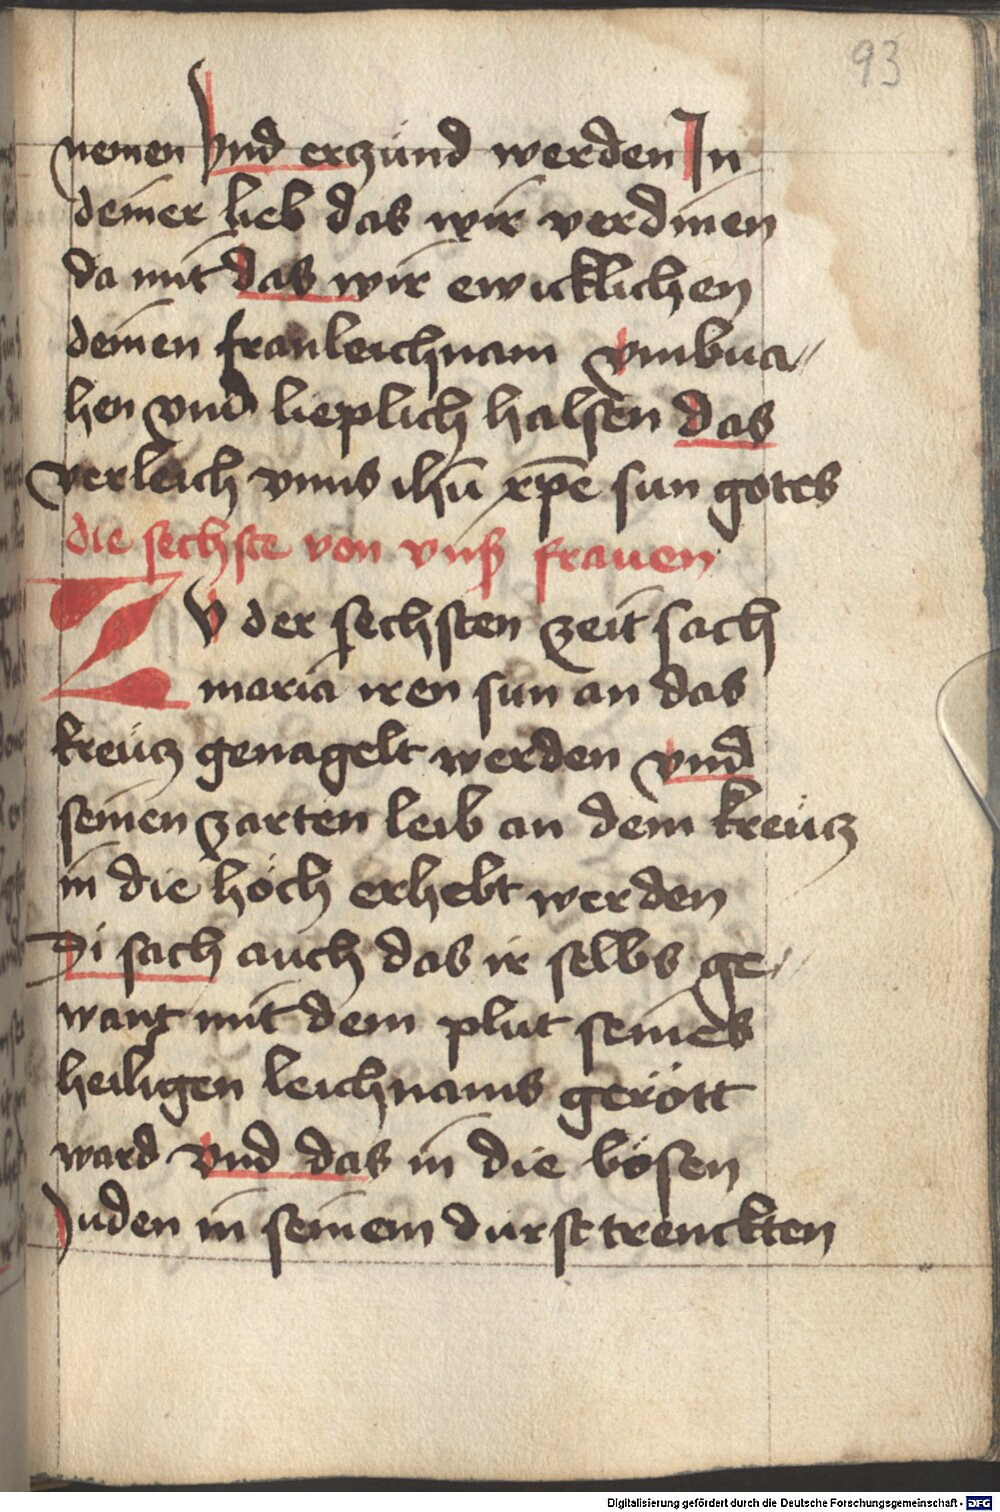 93
nemen Vnd erzünd werden In
deiner lieb das wir verdinen
da mit das wir ewicklichen
deinen franleichnam vmbua//
hen vnd lieplich halsen das
verleich vnns ihū xp̄e sun gotes
die sechste von vnß frauen
ZV der sechsten zeit sach
maria iren sun an das
kreücz genagelt werden vnd
seinen zarten leib an dem kreücz
in die höch erhebt werden
Si sach auch das ir selbs ge//
want mit dem plut seines
heiligen leichnams gerött
ward vnd das in die bösen
Juden in seinem durst trenckten
Digitalisierung gefördert durch die Deutsche Forschungsgemeinschaft - DFG